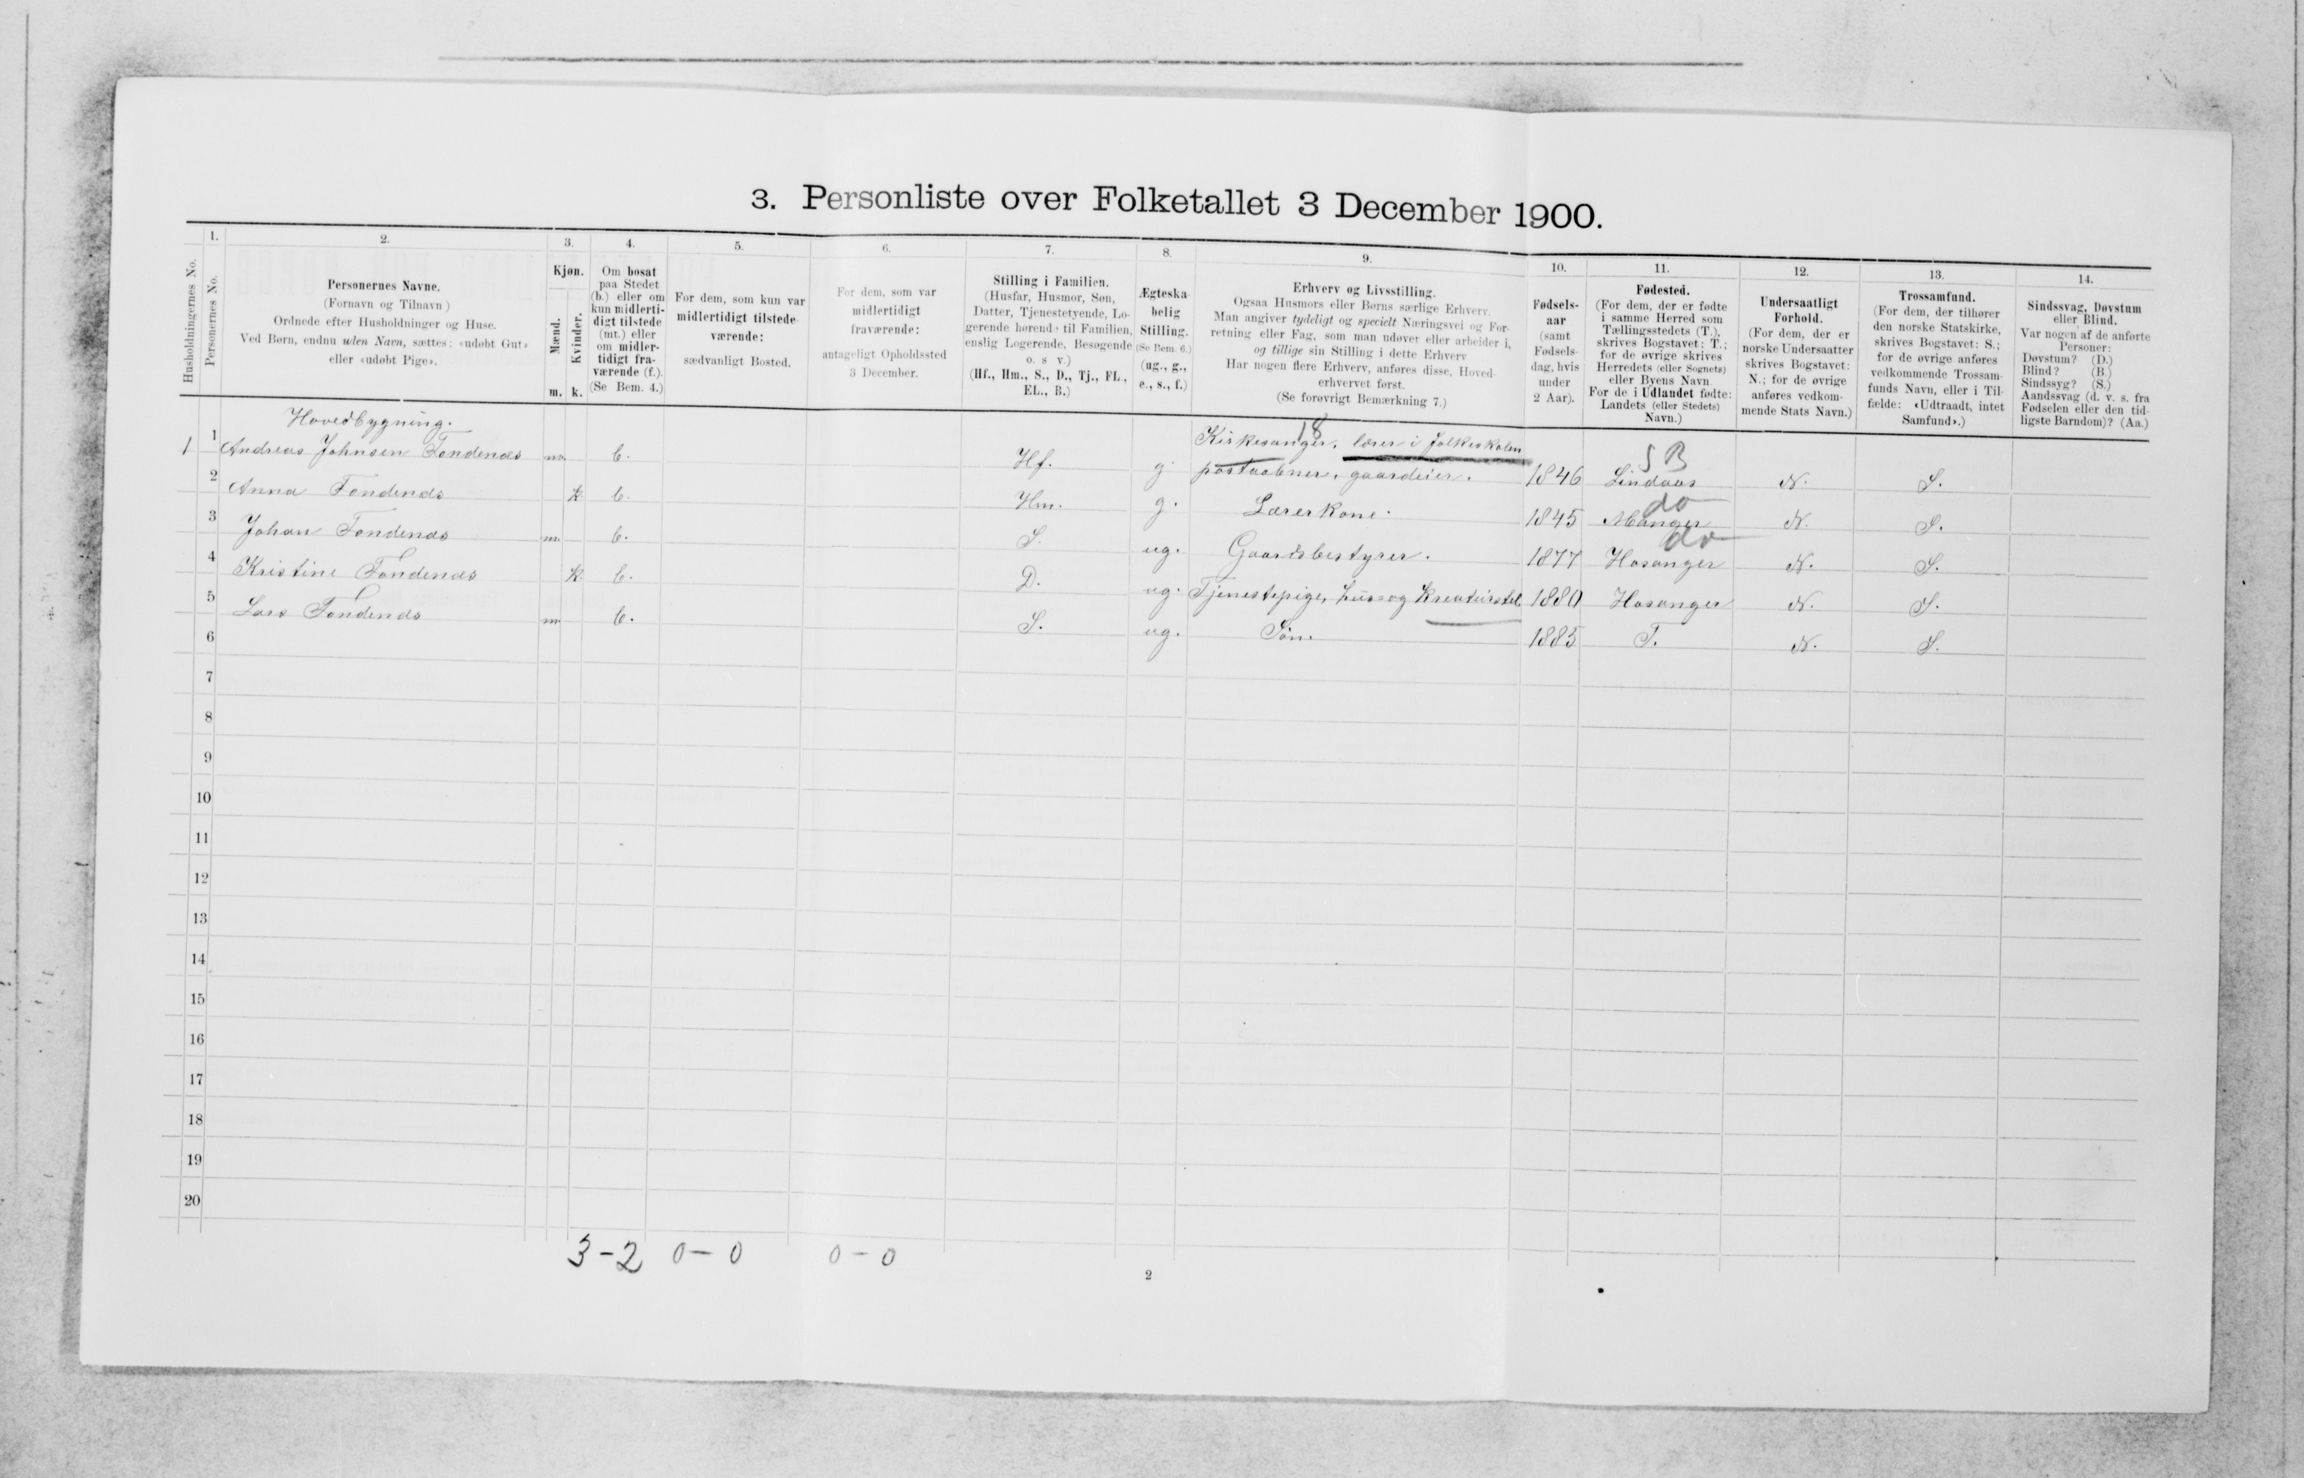 3. Personliste over Folketallet 3 December 1900.
Husholdningernes No.
1.
Personernes No.
2.
Personernes Navne.
(Fornavn og Tilnavn)
Ordnede efter Husholdninger og Huse.
Ved Børn, endnu uden Navn, sættes: «udøbt Gut»
eller «udøbt Pige».
3.
Kjøn.
Mænd.
m.
Kvinder.
k.
4.
Om bosat
paa Stedet
(b.) eller om
kun midlerti-
digt tilstede
(mt.) eller
om midler-
tidigt fra-
værende (f.).
(Se Bem. 4.)
5.
For dem, som kun var
midlertidigt tilstede-
værende:
sædvanligt Bosted.
6.
For dem, som var
midlertidigt
fraværende:
antageligt Opholdssted
3 December.
7.
Stilling i Familien.
(Husfar, Husmor, Søn,
Datter, Tjenestetyende, Lo-
gerende hørende til Familien,
enslig Logerende, Besøgende
o. s v.)
(Hf., Hm., S., D., Tj., FL.,
EL., B.)
8.
Ægteska-
belig
Stilling.
(Se Bem. 6.)
(ug., g.,
e., s., f.)
9.
Erhverv og Livsstilling.
Ogsaa Husmors eller Børns særlige Erhverv.
Man angiver tydeligt og specielt Næringsvei og For-
retning eller Fag, som man udøver eller arbeider i,
og tillige sin Stilling i dette Erhverv
Har nogen flere Erhverv, anføres disse, Hoved-
erhvervet først.
(Se forøvrigt Bemærkning 7.)
10.
Fødsels-
aar
(samt
Fødsels-
dag, hvis
under
2 Aar).
11.
Fødested.
(For dem, der er fødte
i samme Herred som
Tællingsstedets (T.),
skrives Bogstavet: T.;
for de øvrige skrives
Herredets (eller Sognets)
eller Byens Navn
For de i Udlandet fødte:
Landets (eller Stedets)
Navn.)
12.
Undersaatligt
Forhold.
(For dem, der er
norske Undersaatter
skrives Bogstavet:
N.; for de øvrige
anføres vedkom-
mende Stats Navn.)
13.
Trossamfund.
(For dem, der tilhører
den norske Statskirke,
skrives Bogstavet: S.;
for de øvrige anføres
vedkommende Trossam-
funds Navn, eller i Til-
fælde: «Udtraadt, intet
Samfund».)
14.
Sindssvag, Døvstum
eller Blind.
Var nogen af de anførte
Personer:
Døvstum? (D.)
Blind? (B.)
Sindssyg? (S.)
Aandssvag (d. v. s. fra
Fødselen eller den tid-
ligste Barndom)? (Aa.)
Hovedbygning.
18
Kirkesanger, lærer i folkeskolen
S B
1 1 Andreas Johnsen Tondenæs m. b. Hf. g. postaabner, gaardeier. 1846 Lindaas N. S.
do
2 Anna Tondenæs k. b. Hm. g. Lærerkone. 1845 Manger N. S.
do
3 Johan Tondenæs m. b. S. ug. Gaardsbestyrer. 1877 Hosanger N. S.
4 Kristine Tondenæs k. b. D. ug. Tjenestepige, hus- og kreaturstel 1880 Hosanger N. S.
5 Lars Tondenæs m. b. S. ug. Søn. 1885 T. N. S.
6
7
8
9
10
11
12
13
14
15
16
17
18
19
20
3-2 0-0 0-0
2